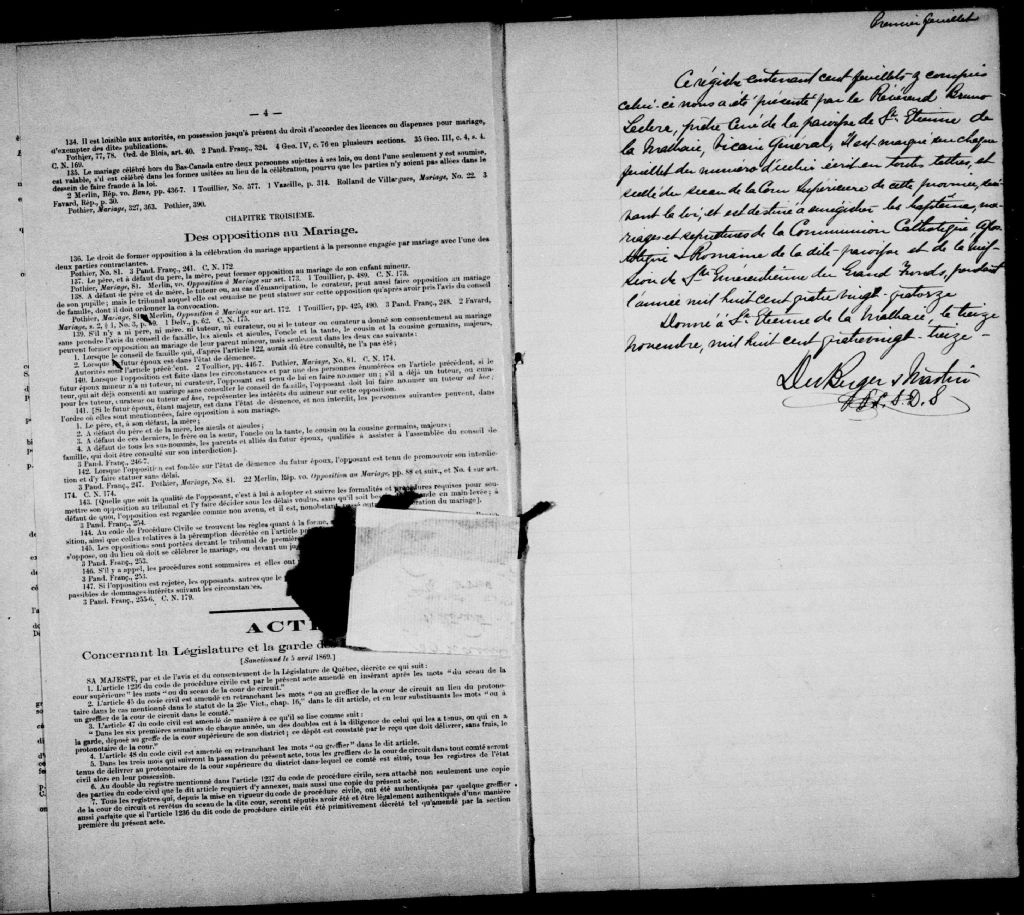 — 4 —
134. Il est loisible aux autorités, en possession jusqu'à présent du droit d'accorder des licences ou dispenses pour mariage,
d'exempter des dites publications.
Pothier, 77, 78. Ord. de Blois, art. 40. 2 Pand. Franç., 324. 4 Geo. IV, c. 76 en plusieurs sections. 35 Geo. III, c. 4, s. 4.
C. N. 169.
135. Le mariage célébré hors du Bas-Canada entre deux personnes sujettes à ses lois, ou dont l'une seulement y est soumise,
est valable, s'il est célébré dans les formes usitées au lieu de la célébration, pourvu que les parties n'y soient pas allées dans le
dessein de faire fraude à la loi.
2 Merlin, Rép. vo. Bans, pp. 436-7. 1 Touillier, No. 577. 1 Vazeille, p. 314. Rolland de Villargues, Mariage, No. 22. 3
Favard, Rép., p. 30.
Pothier, Mariage, 327, 363. Pothier, 390.
CHAPITRE TROISIÈME.
Des oppositions au Mariage.
136. Le droit de former opposition à la célébration du mariage appartient à la personne engagée par mariage avec l'une des
deux parties contractantes.
Pothier, No. 81. 3 Pand. Franç., 241. C. N. 172.
137. Le père, et à défaut du père, la mère, peut former opposition au mariage de son enfant mineur.
Pothier, Mariage, 81. Merlin, vo. Opposition à Mariage sur art. 173. 1 Touillier, p. 489. C. N. 173.
138. A défaut de père et de mère, le tuteur et, au cas d'émancipation, le curateur, peut aussi faire opposition au mariage
de son pupille; mais le tribunal auquel elle est soumise ne peut statuer sur cette opposition qu'après avoir pris l'avis du conseil
de famille, dont il doit ordonner la convocation.
Pothier, Mariage, 81. Merlin, Opposition à Mariage sur art. 172. 1 Touillier, pp. 425, 490. 3 Pand. Franç., 248. 2 Favard,
Mariage, s. 2, § 1, No. 3, p. 1 Delv., p. 62. C. N. 175.
139. S'il n'y a ni père, ni mère, ni tuteur, ni curateur, ou si le tuteur ou curateur a donné son consentement au mariage
sans prendre l'avis du conseil de famille, les aïeuls et aïeules, l'oncle et la tante, le cousin et la cousine germains, majeurs,
peuvent former opposition au mariage de leur parent mineur, mais seulement dans les deux cas suivants:
1. Lorsque le conseil de famille qui, d'après l'article 122, aurait dû être consulté, ne l'a pas été;
2. Lorsque le futur époux est dans l'état de démence.
Autorités sous l'article précédent. 2 Touillier, pp. 446-7. Pothier, Mariage, No. 81. C. N. 174.
140. Lorsque l'opposition est faite dans les circonstances et par une des personnes énumérées en l'article précédent, si le
futur époux mineur n'a ni tuteur, ni curateur, l'opposant est tenu de lui en faire nommer un; s'il a déjà un tuteur, ou cura-
teur, qui ait déjà consenti au mariage sans consulter le conseil de famille, l'opposant doit lui faire nommer un tuteur ad hoc;
pour les tuteur, curateur ou tuteur ad hoc, représenter les intérêts du mineur sur cette opposition.
141. [Si le futur époux, étant majeur, est dans l'état de démence, et non interdit, les personnes suivantes peuvent, dans
l'ordre où elles sont mentionnées, faire opposition à son mariage:
1. Le père, et, à son défaut, la mère;
2. A défaut du père et de la mère, les aïeuls et aïeules;
3. A défaut de ces derniers, le frère ou la sœur, l'oncle ou la tante, le cousin ou la cousine germains, majeurs;
4. A défaut de tous les sus-nommés, les parents et alliés du futur époux, qualifiés à assister à l'assemblée du conseil de
famille, qui doit être consulté sur son interdiction].
3 Pand. Franç., 246-7.
142. Lorsque l'opposition est fondée sur l'état de démence du futur époux, l'opposant est tenu de promouvoir son interdic-
tion et d'y faire statuer sans délai.
3 Pand. Franç., 247. Pothier, Mariage, No. 81. 22 Merlin, Rép. vo. Opposition au Mariage, pp. 88 et suiv., et No. 4 sur art.
174. C. N. 174.
143. [Quelle que soit la qualité de l'opposant, c'est à lui à adopter et suivre les formalités et procédures requises pour sou-
mettre son opposition au tribunal et l'y faire décider sous les délais voulus, sans qu'il soit en main-levée; à
défaut de quoi, l'opposition est regardée comme non avenue, et il est, nonobstant, du mariage].
3 Pand. Franç., 254.
144. Au code de Procédure Civile se trouvent les règles quant à la forme
sition, ainsi que celles relatives à la péremption décrétée en l'article
145. Les oppositions sont portées devant le tribunal de première
s'oppose, ou du lieu où doit se célébrer le mariage, ou devant un
3 Pand. Franç., 253.
146. S'il y a appel, les procédures sont sommaires et elles ont
3 Pand. Franç., 253.
147. Si l'opposition est rejetée, les opposants, autres que le
passibles de dommages-intérêts suivant les circonstances.
3 Pand. Franç., 255-6. C. N. 179.
ACT
Concernant la Législature et la garde
[Sanctionné le 5 avril 1869.]
SA MAJESTÉ, par et de l'avis et du consentement de la Législature de Québec, décrète ce qui suit:
1. L'article 1236 du code de procédure civile est par le présent acte amendé en insérant après les mots "du sceau de la
cour supérieure" les mots "ou du sceau de la cour de circuit."
2. L'article 45 du code civil est amendé en retranchant les mots "ou au greffier de la cour de circuit au lieu du protono-
taire dans le cas mentionné dans le statut de la 25e Vict., chap. 16," dans le dit article, et en leur substituant les mots "ou à
un greffier de la cour de circuit dans le comté."
3. L'article 47 du code civil est amendé de manière à ce qu'il se lise comme suit:
"Dans les six premières semaines de chaque année, un des doubles est à la diligence de celui qui les a tenus, ou qui en a
la garde, déposé au greffe de la cour supérieure de son district; ce dépôt est constaté par le reçu que doit délivrer, sans frais, le
protonotaire de la cour."
4. L'article 48 du code civil est amendé en retranchant les mots "ou greffier" dans le dit article.
5. Dans les trois mois qui suivront la passation du présent acte, tous les greffiers de la cour de circuit dans tout comté seront
tenus de délivrer au protonotaire de la cour supérieure du district dans lequel ce comté est situé, tous les registres de l'état
civil alors en leur possession.
6. Au double du registre mentionné dans l'article 1237 du code de procédure civile, sera attaché non seulement une copie
des parties du code civil que le dit article requiert d'y annexer, mais aussi une copie du présent acte.
7. Tous les registres qui, depuis la mise en vigueur du code de procédure civile, ont été authentiqués par quelque greffier
de la cour de circuit et revêtus du sceau de la dite cour, seront réputés avoir été et être légalement authentiqués d'une manière
aussi parfaite que si l'article 1236 du dit code de procédure civile eût été primitivement décrété tel qu'amendé par la section
première du présent acte.
Premier feuillet
Ce régistre contenant cent feuillets y compris
celui-ci nous a été présenté par le Révérend Bruno
Leclerc, prêtre Curé de la paroisse de St. Etienne de
la Malbaie, Vicaire Général, il est marqué en chaque
feuillet du numéro d'icelui écrit en toutes lettres, et
scellé du sceau de la Cour Supérieure de cette province, sui-
vant la loi, et est destiné à enregistrer les baptêmes, ma-
riages et sépultures de la Communion Catholique Apos-
tolique & Romaine de la dite paroisse et de la mis-
sion de Ste Emerentienne du Grand Fonds, pendant
l'année mil huit cent quatre vingt-quatorze
Donné à St. Etienne de la Malbaie, le treize
novembre, mil huit cent quatrevingt-treize -
DuBerger & Martin
P. S. C. S. D. S